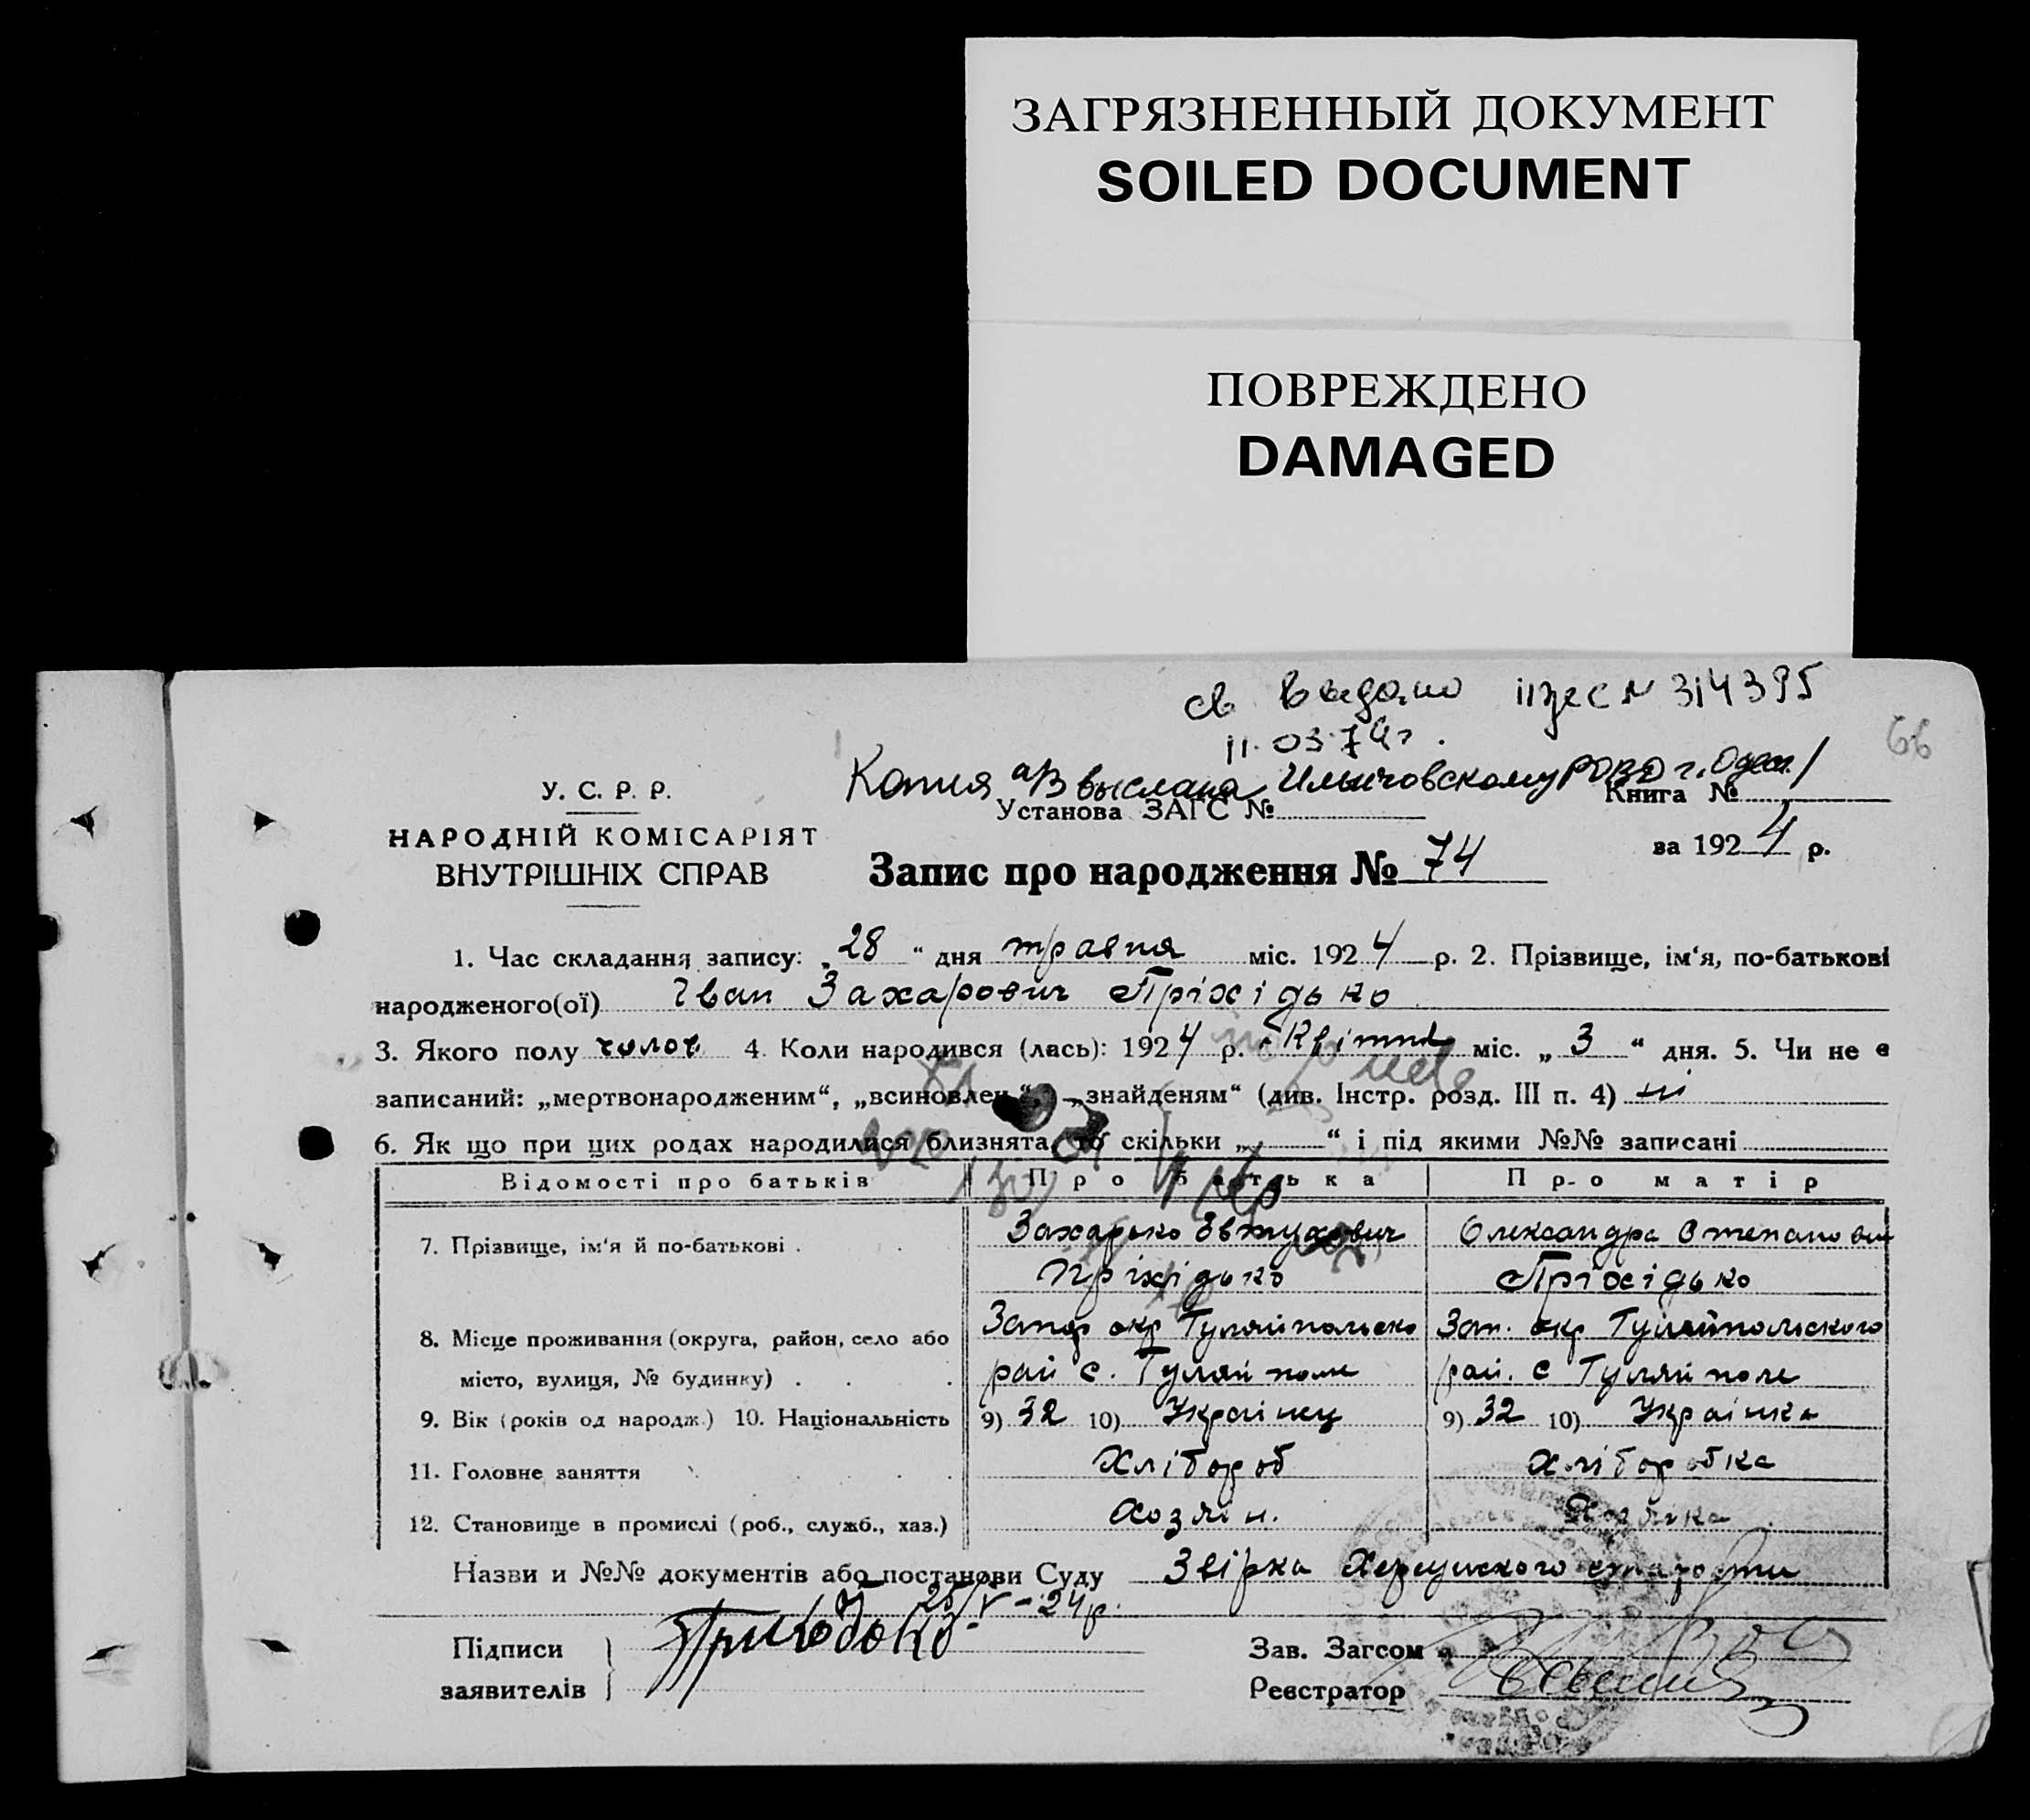 ЗАГРЯЗНЕННЫЙ ДОКУМЕНТ
SOILED DOCUMENT
ПОВРЕЖДЕНО
DAMAGED
св. выдано № 314395
11.03.74г.
66
Копия а/з выслана Ильичовскому РОВД г. Одес.
У. С. Р. Р.
НАРОДНІЙ КОМІСАРІЯТ
ВНУТРІШНІХ СПРАВ
Установа ЗАГС №
Книга №
за 1924 р.
Запис про народження № 74
1. Час складання запису: „28“ дня травня міс. 1924 р. 2. Прізвище, ім'я, по-батькові
народженого(ої) Іван Захарович Пріхідько
3. Якого полу чолов 4. Коли народився (лась): 1924 р. Квітня міс. „3“ дня. 5. Чи не є
записаний: „мертвонародженим“, „всиновлен“, „знайденям“ (див. Інстр. розд. III п. 4) ні
6. Як що при цих родах народилися близнята, то скільки „ “ і під якими №№ записані
Відомості про батьків Про батька Про матір
7. Прізвище, ім'я й по-батькові . Захарько Евтухович Олександра Степанови
Пріхідько Пріхідько
8. Місце проживання (округа, район, село або Запор окр Гуляйпольско Зап. окр Гуляйпольского
місто, вулиця, № будинку) . . . рай с. Гуляй поле рай. с Гуляй поле
9. Вік (років од народж.) 10. Національність 9) 32 10) Украінец 9) 32 10) Украінка
11. Головне заняття Хлібороб Хліборобка
12. Становище в промислі (роб., служб., хаз.) Хозяін. Хозяйка
Назви и №№ документів або постанови Суду Звірка
25/V-24р.
Підписи
заявителів
Приходько
Зав. Загсом
Реєстратор